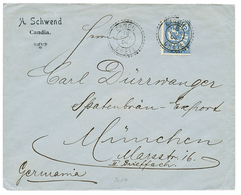 A. Schwend
Candia.
Herrn
Carl Dürrwanger
Spatenbräu-Export
München
Marsstr. 16.
Germania